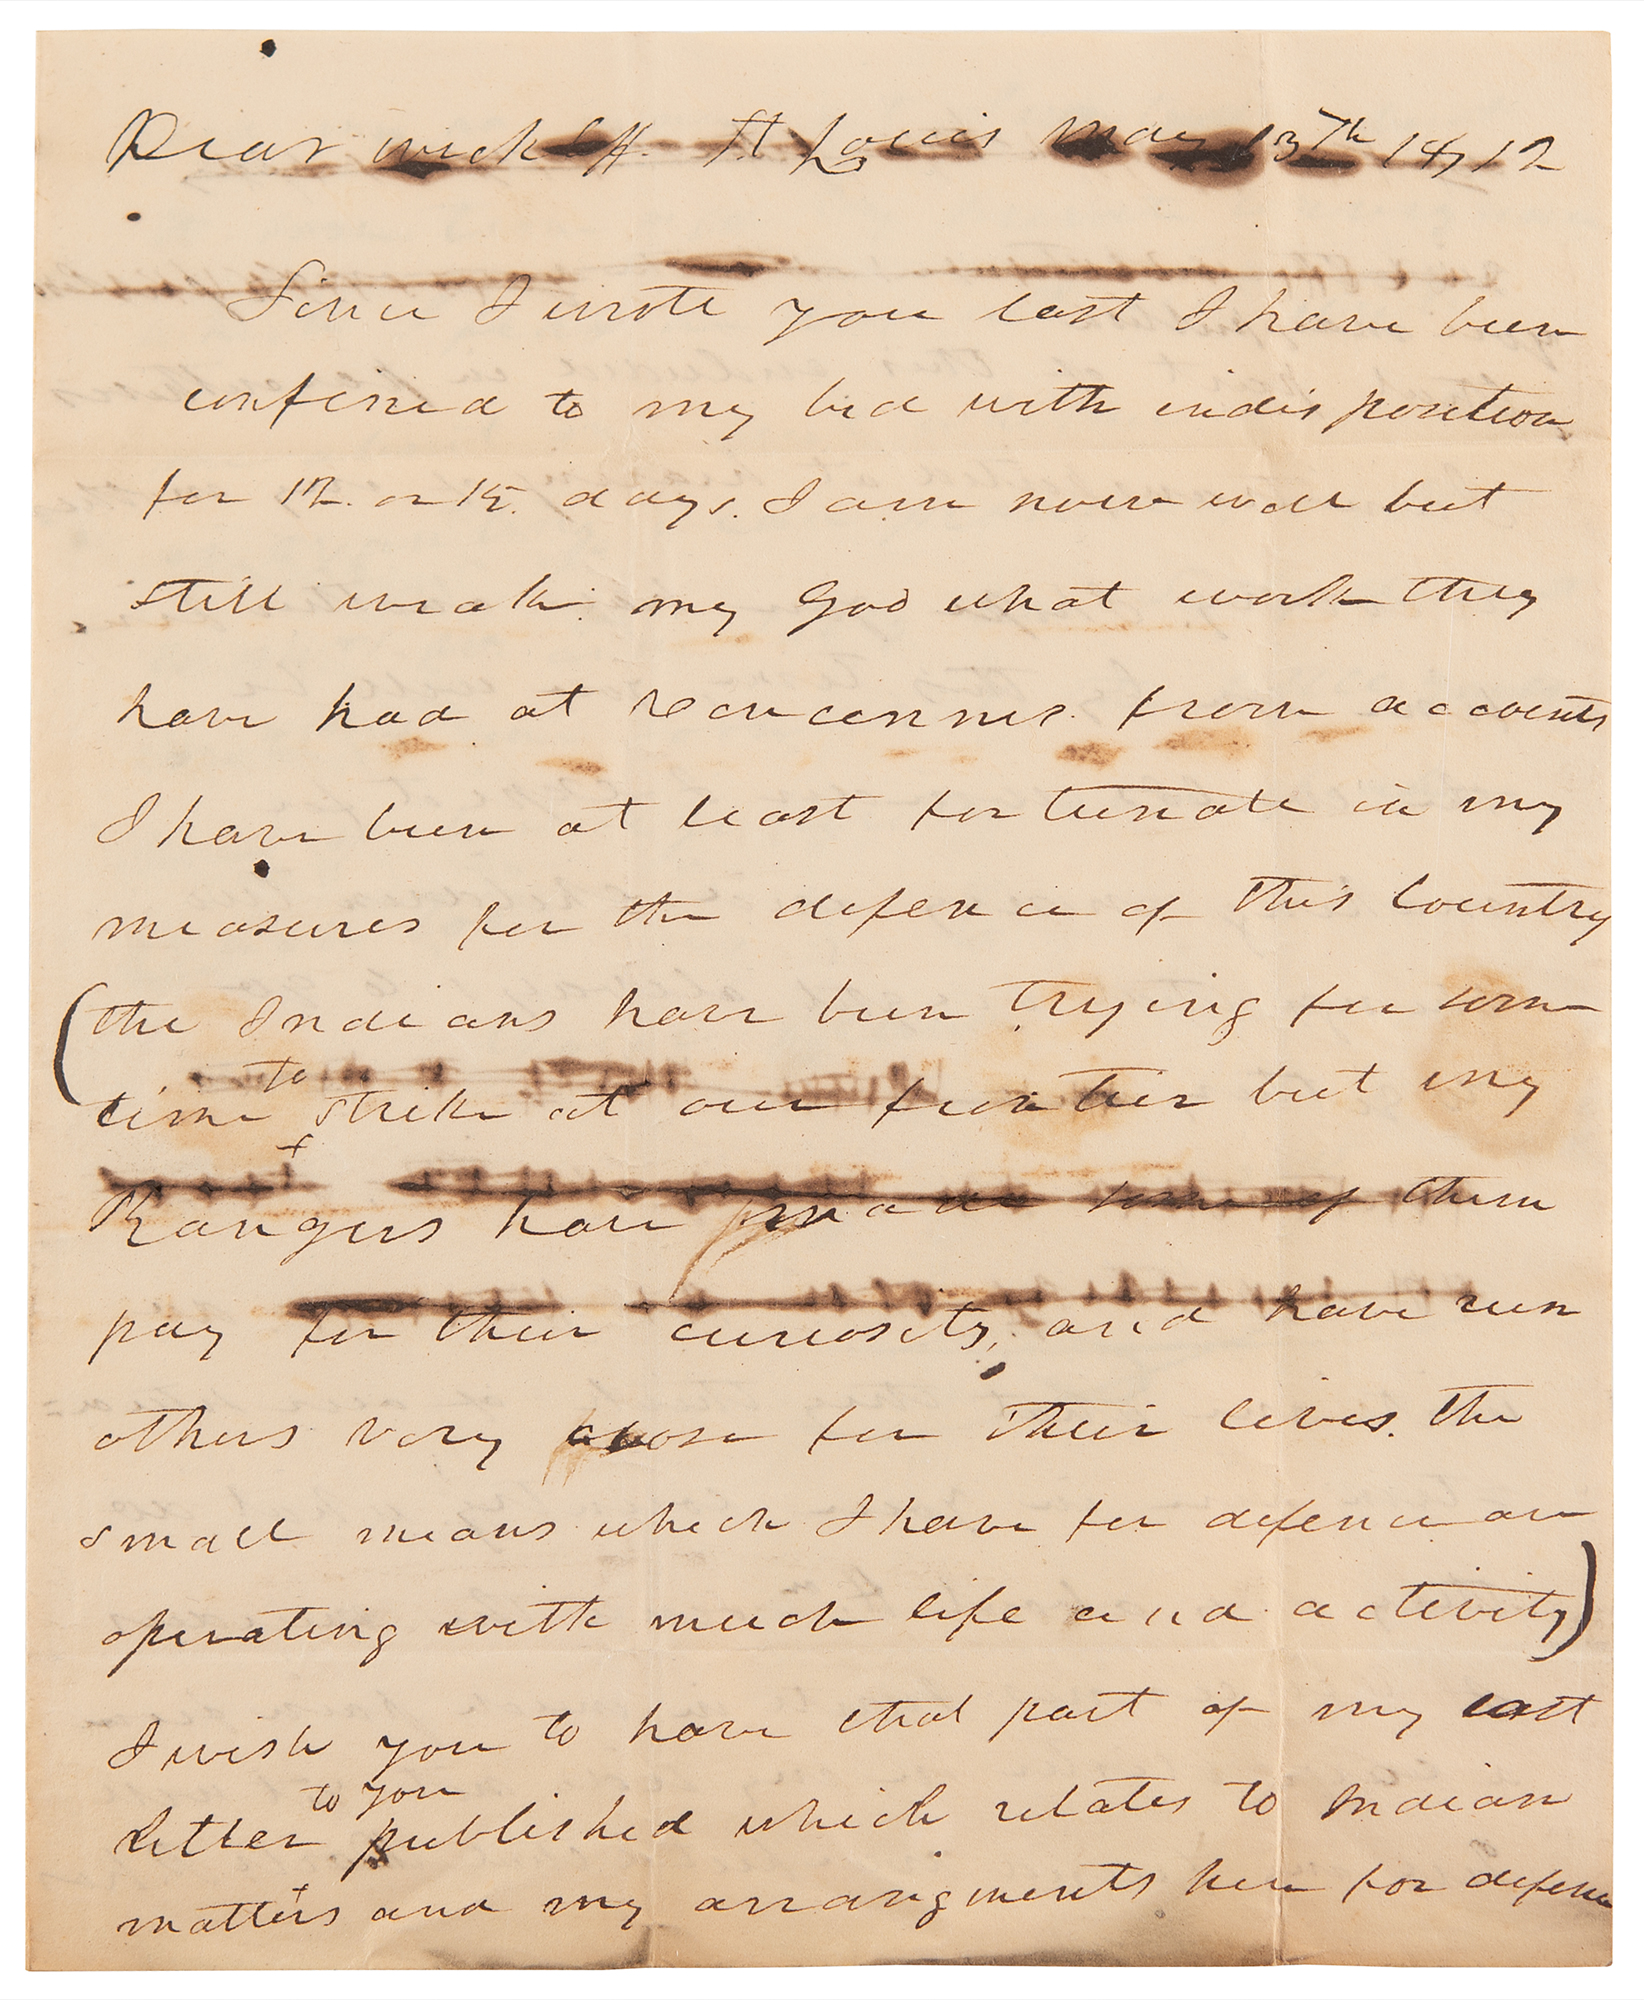 Dear Wickliff. St Louis May 13th 1812
Since I wrote you last I have been
confined to my bed with indisposition
for 12. or 15. days. I am now well but
still weak. my God what work they
have had at Vencennes. from accounts
I have been at least fortunate in my
measures for the defence of this Country
(the Indians have been trying for some
time to strike at our frontier but my
Rangers have made some of them
pay for their curiosity, and have run
others very close for their lives. the
small means which I have for defence are
operating with much life and activity)
I wish you to have that part of my last
letter to you published which relates to Indian
matters and my arrangments here for defence